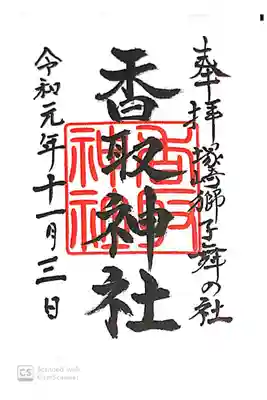 奉拝 塚崎獅子舞の社
香取神社
香取神社
令和元年十一月三日
CS Scanned with
CamScanner